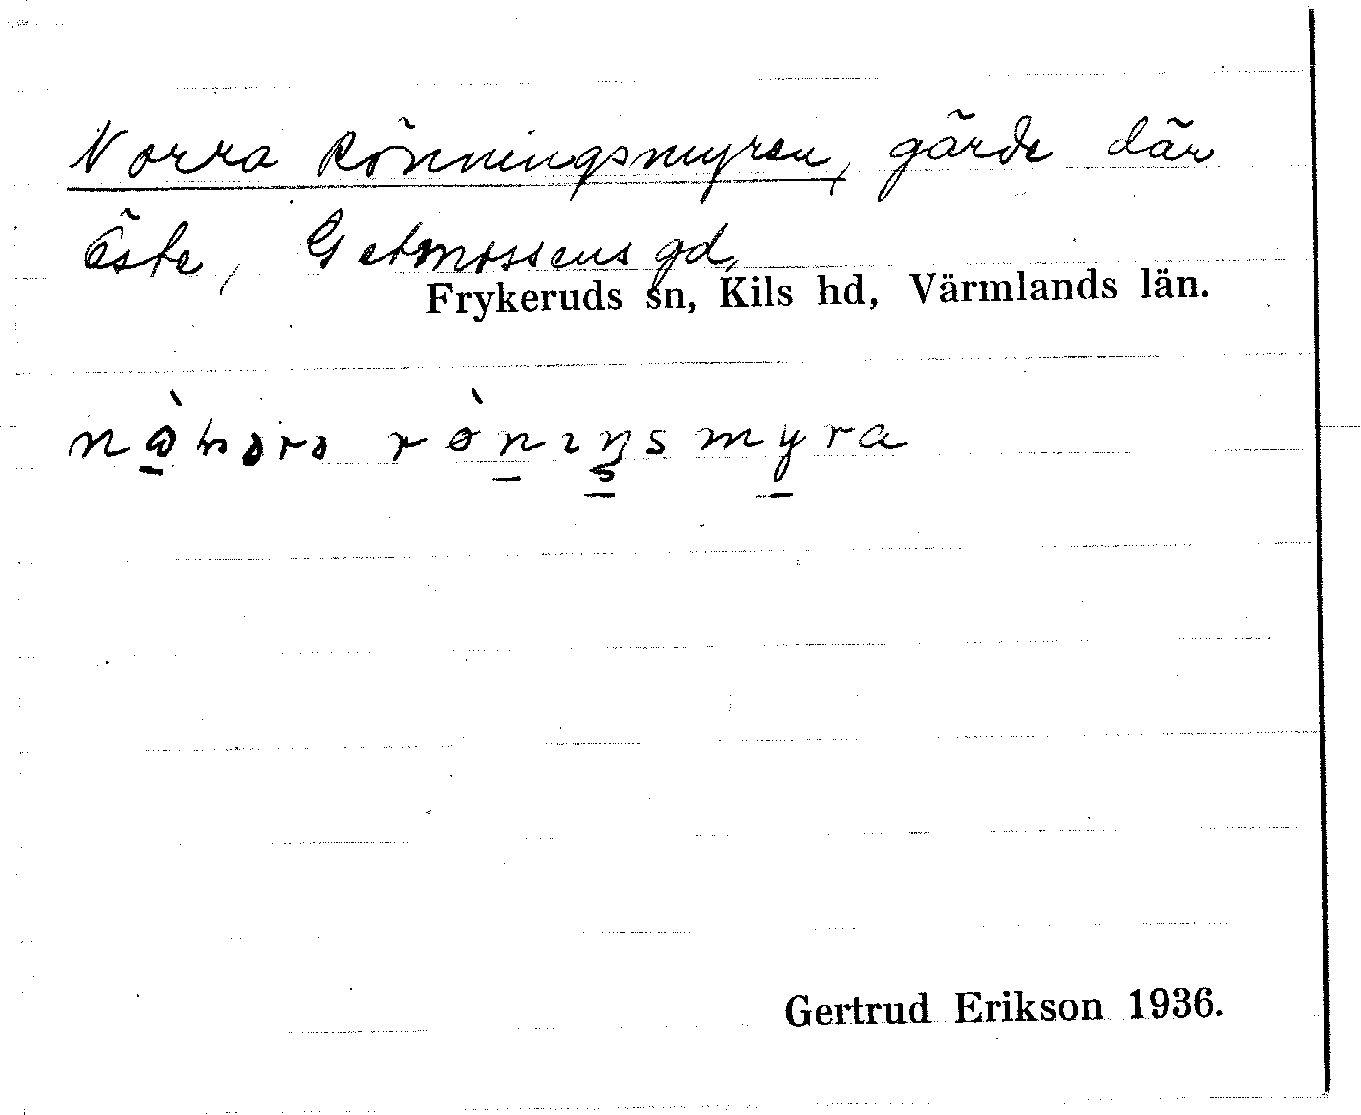 Norra Rönningsmyren, gärde där
öster, Getmossens gd,
Frykeruds sn, Kils hd, Värmlands län.
rö̀nıŋsmyra
Gertrud Erikson 1936.